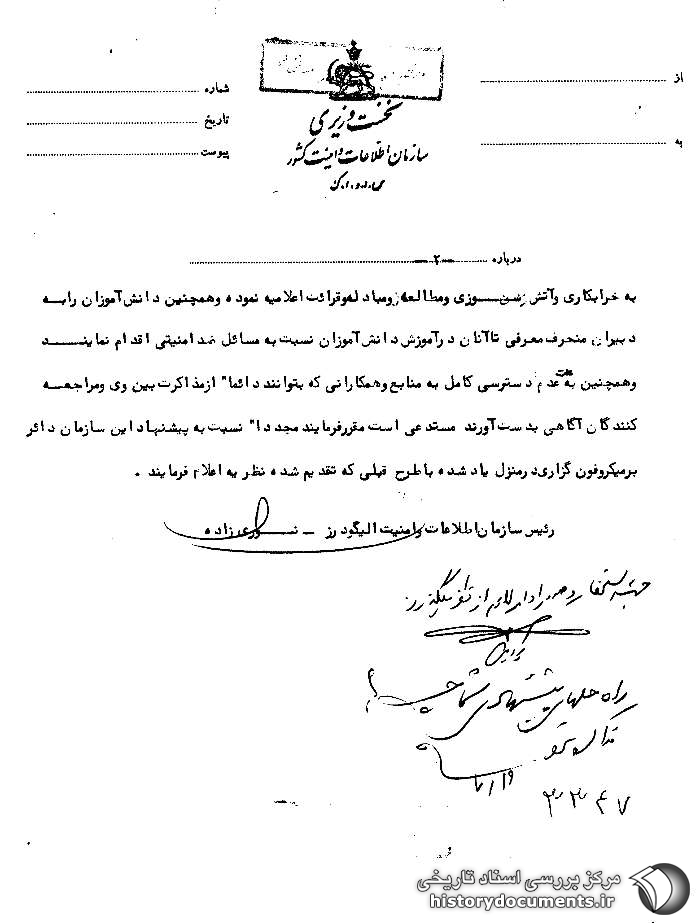 از
به
شماره
تاریخ
پیوست
نخست وزیری
سازمان اطلاعات و امنیت کشور
س.ا.و.ا.ک
درباره -۲-
به خرابکاری وآتش سوزی ومطالعه ومبادله وقرائت اعلامیه نموده وهمچنین دانش‌آموزان رابه
دبیران منحرف معرفی تاآنان درآموزش دانش‌آموزان نسبت به مسائل ضد امنیتی اقدام نماینـــد
وهمچنین بعلت عدم دسترسی کامل به منابع وهمکارانی که بتوانند دائما" ازمذاکرت بین وی ومراجعـه
کنندگان آگاهی بدست‌آورند مستدعی است مقررفرمایند مجددا" نسبت به پیشنهاد این سازمان دائر
برمیکروفون گزاری درمنزل یاد شده باطرح قبلی که تقدیم شده نظریه اعلام فرمایند .
رئیس سازمان اطلاعات وامنیت الیگودرز ـ نـــوری زاده
راه حلهای پیشنهادی شما چیست
۳۳۴۷
مرکز بررسی اسناد تاریخی
historydocuments.ir